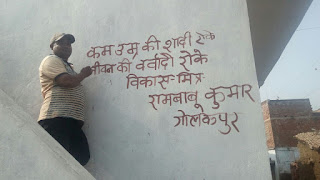 कम उम्र की शादी रोके
जीवन की बर्वादी रोके
विकास मित्र
रामबाबू कुमार
गोलकपुर